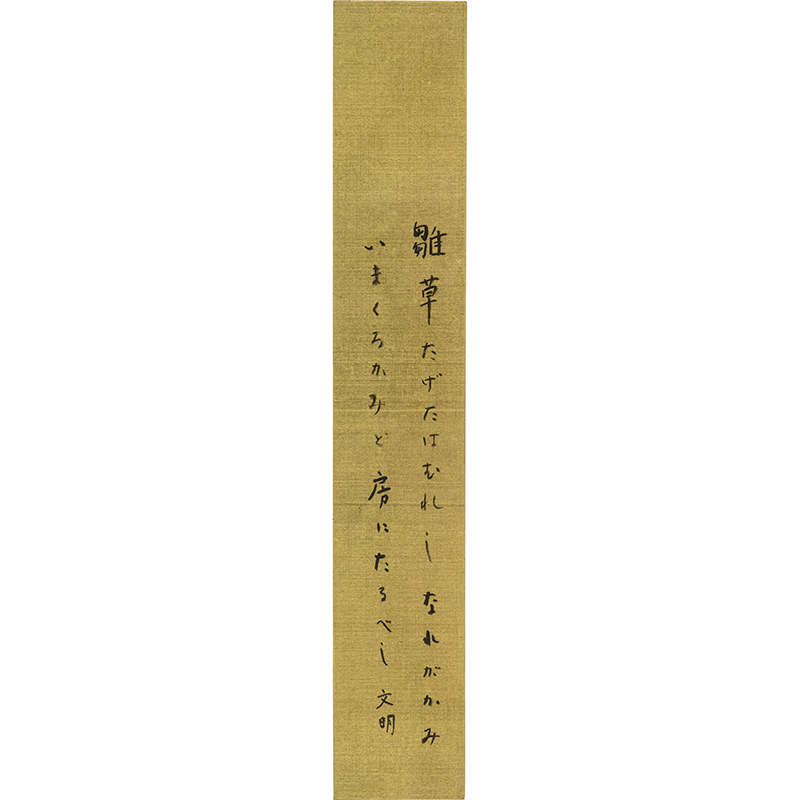 雛草たげたはむれしなれがかみ
いまくろかみど房にたるべし 文明